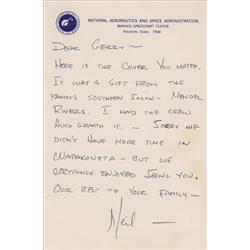 NATIONAL AERONAUTICS AND SPACE ADMINISTRATION
MANNED SPACECRAFT CENTER
HOUSTON, TEXAS 77058
DEAR GERRY —
HERE IS THE COVER YOU
IT WAS A GIFT FROM THE
FAMOUS SOUTHERN MENDEL
RIVERS. I HAD THE CREW
AUTOGRAPH IT. — SORRY WE
DIDN'T HAVE MORE TIME IN
WAPAKONETA — BUT WE
CERTAINLY ENJOYED SEEING YOU.
OUR BEST TO YOUR FAMILY —
Neil —